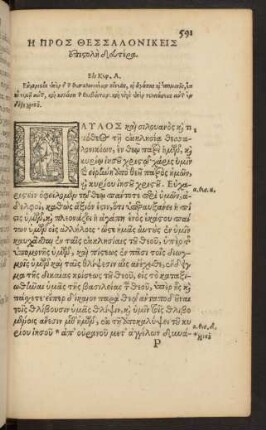 591
Η ΠΡΟΣ ΘΕΣΣΑΛΟΝΙΚΕΙΣ
ἐπιστολὴ δευτέρα.
Κεφ. Α.
ΠΑΥΛΟΣ καὶ σιλουανὸς καὶ τι
μόθεος τῇ ἐκκλησίᾳ θεσσα
λονικέων, ἐν θεῷ πατρὶ ἡμῶν, καὶ
κυρίῳ ἰησοῦ χριστῷ· χάρις ὑμῖν
καὶ εἰρήνη ἀπὸ θεοῦ πατρὸς ἡμῶν,
καὶ κυρίου ἰησοῦ χριστοῦ. Εὐχα
ριστεῖν ὀφείλομεν τῷ θεῷ πάντοτε περὶ ὑμῶν, ἀ
δελφοὶ, καθὼς ἄξιόν ἐστιν, ὅτι ὑπεραυξάνει ἡ πίστις
ὑμῶν, καὶ πλεονάζει ἡ ἀγάπη ἑνὸς ἑκάστου πάντων
ὑμῶν εἰς ἀλλήλους· ὥστε ἡμᾶς αὐτοὺς ἐν ὑμῖν
καυχᾶσθαι ἐν ταῖς ἐκκλησίαις τοῦ θεοῦ, ὑπὲρ τῆς
ὑπομονῆς ὑμῶν, καὶ πίστεως ἐν πᾶσι τοῖς διωγ
μοῖς ὑμῶν καὶ ταῖς θλίψεσιν αἷς ἀνέχεσθε, ἔνδειγ
μα τῆς δικαίας κρίσεως τοῦ θεοῦ, εἰς τὸ καταξιω
θῆναι ὑμᾶς τῆς βασιλείας τοῦ θεοῦ, ὑπὲρ ἧς καὶ
πάσχετε· εἴπερ δίκαιον παρὰ θεῷ ἀνταποδοῦναι
τοῖς θλίβουσιν ὑμᾶς θλίψιν, καὶ ὑμῖν τοῖς θλιβο
μένοις ἄνεσιν μεθ' ἡμῶν, ἐν τῇ ἀποκαλύψει τοῦ κυ
ρίου ἰησοῦ ἀπ' οὐρανοῦ μετ' ἀγγέλων δυνά
P